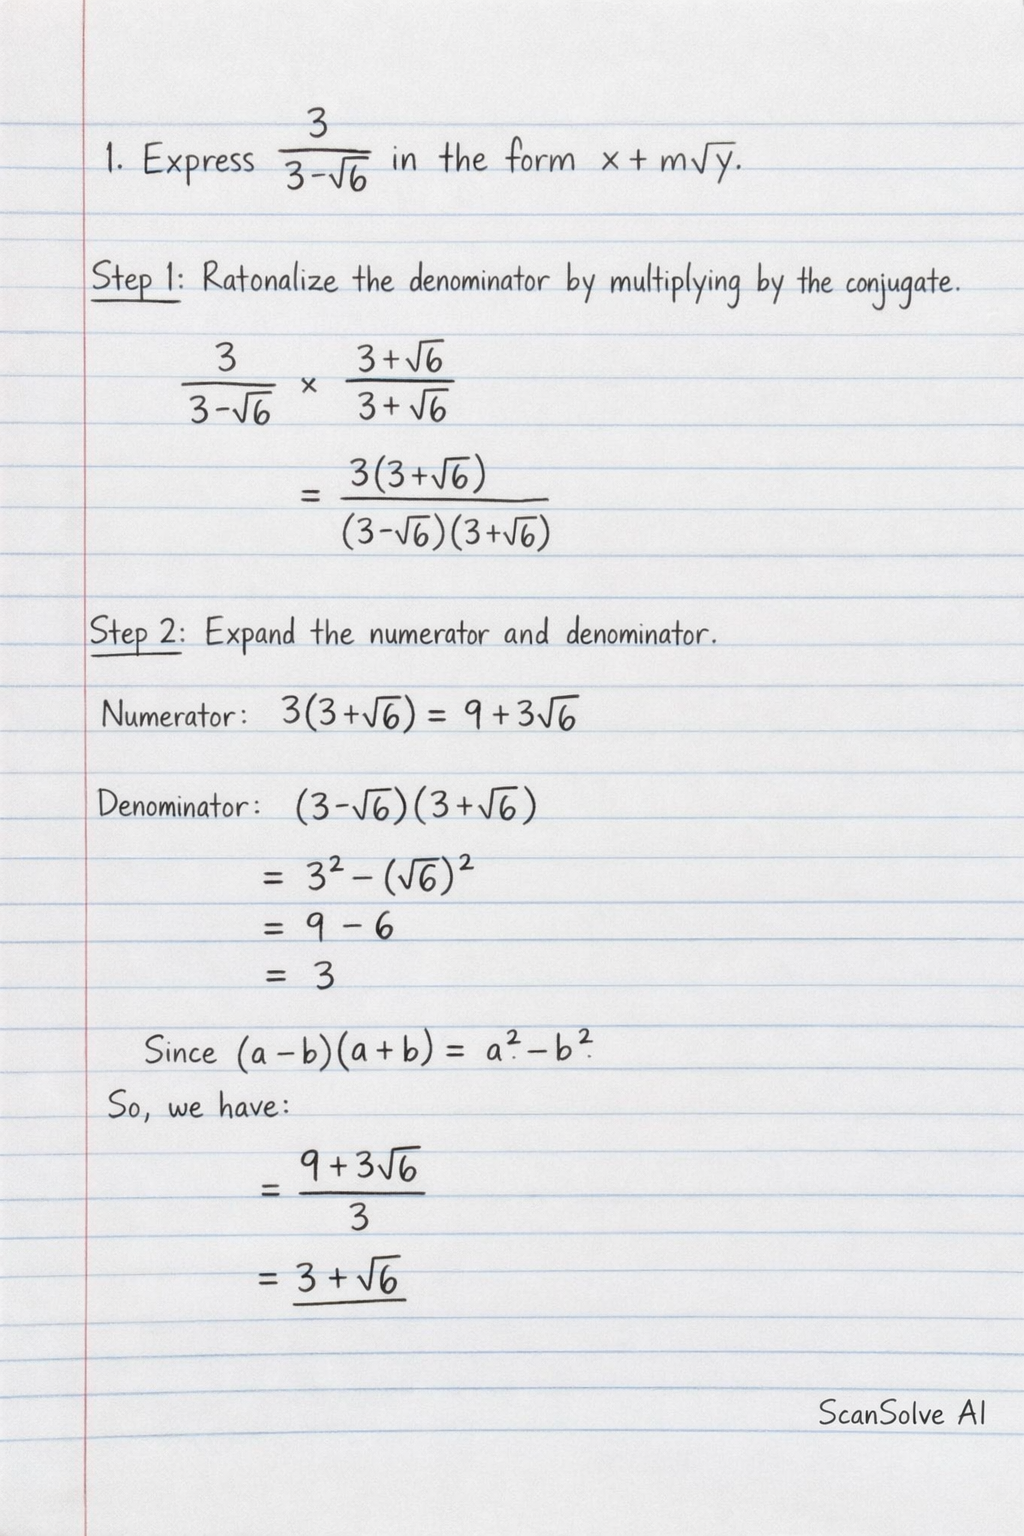 1. Express 3/(3-√6) in the form x + m√y.
Step 1: Ratonalize the denominator by multiplying by the conjugate.
3/(3-√6) × (3+√6)/(3+√6)
= 3(3+√6)/((3-√6)(3+√6))
Step 2: Expand the numerator and denominator.
Numerator: 3(3+√6) = 9 + 3√6
Denominator: (3-√6)(3+√6)
= 3² - (√6)²
= 9 - 6
= 3
Since (a-b)(a+b) = a².-b².
So, we have:
= (9+3√6)/3
= 3 + √6
ScanSolve AI